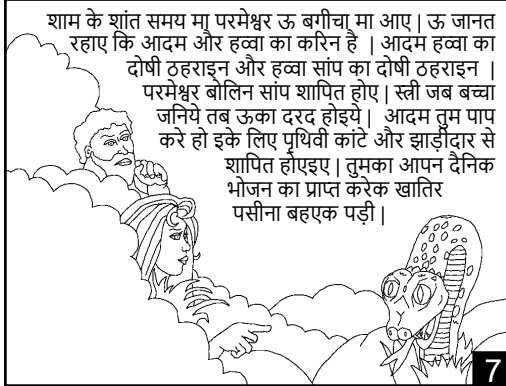 शाम के शांत समय मा परमेश्वर ऊ बगीचा मा आए | ऊ जानत
रहाए कि आदम और हव्वा का करिन है | आदम हव्वा का
दोषी ठहराइन और हव्वा सांप का दोषी ठहराइन |
परमेश्वर बोलिन सांप शापित होए | स्त्री जब बच्चा
जनिये तब ऊका दरद होइये | आदम तुम पाप
करे हो इके लिए पृथिवी कांटे और झाड़ीदार से
शापित होएइए | तुमका आपन दैनिक
भोजन का प्राप्त करेक खातिर
पसीना बहएक पड़ी |
7